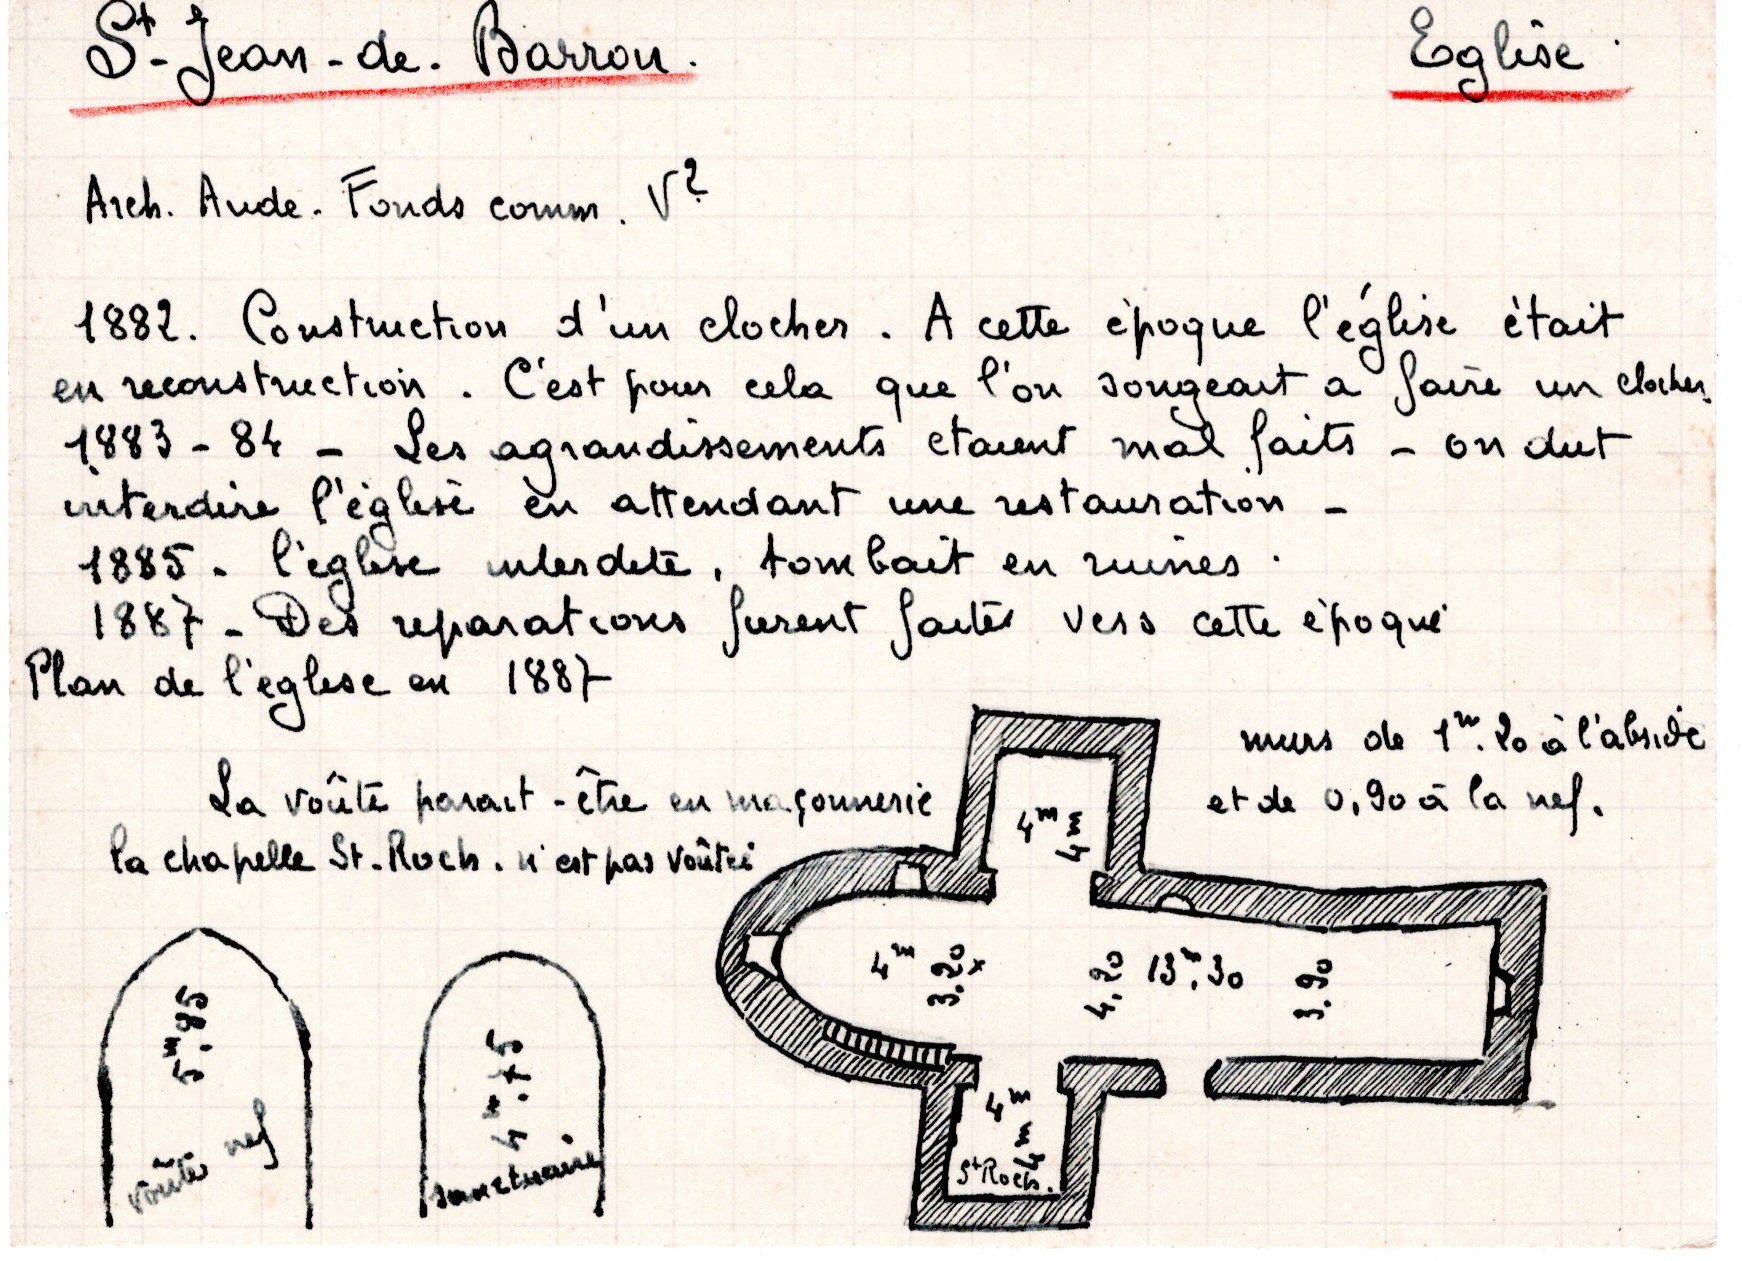 St-Jean-de-Barrou.
Eglise.
Arch. Aude. Fonds comm. V2
1882. Construction d'un clocher. A cette époque l'église était
en reconstruction. C'est pour cela que l'on songeait a faire un clocher.
1883-84 - Les agrandissements etaient mal faits - on dut
interdire l'église en attendant une restauration -
1885. l'eglise interdite, tombait en ruines.
1887 - Des reparations furent faites vers cette époque
Plan de l'eglise en 1887
murs de 1m.20 à l'abside
et de 0,90 à la nef.
La voûte parait-être en maçonnerie
la chapelle St-Roch. n'est pas voûtée
4m
4m
4m
3.20x
4.20
13m.30
3.90
4m
4m
St Roch.
5m.85
voûte nef
4m.75
sanctuaire